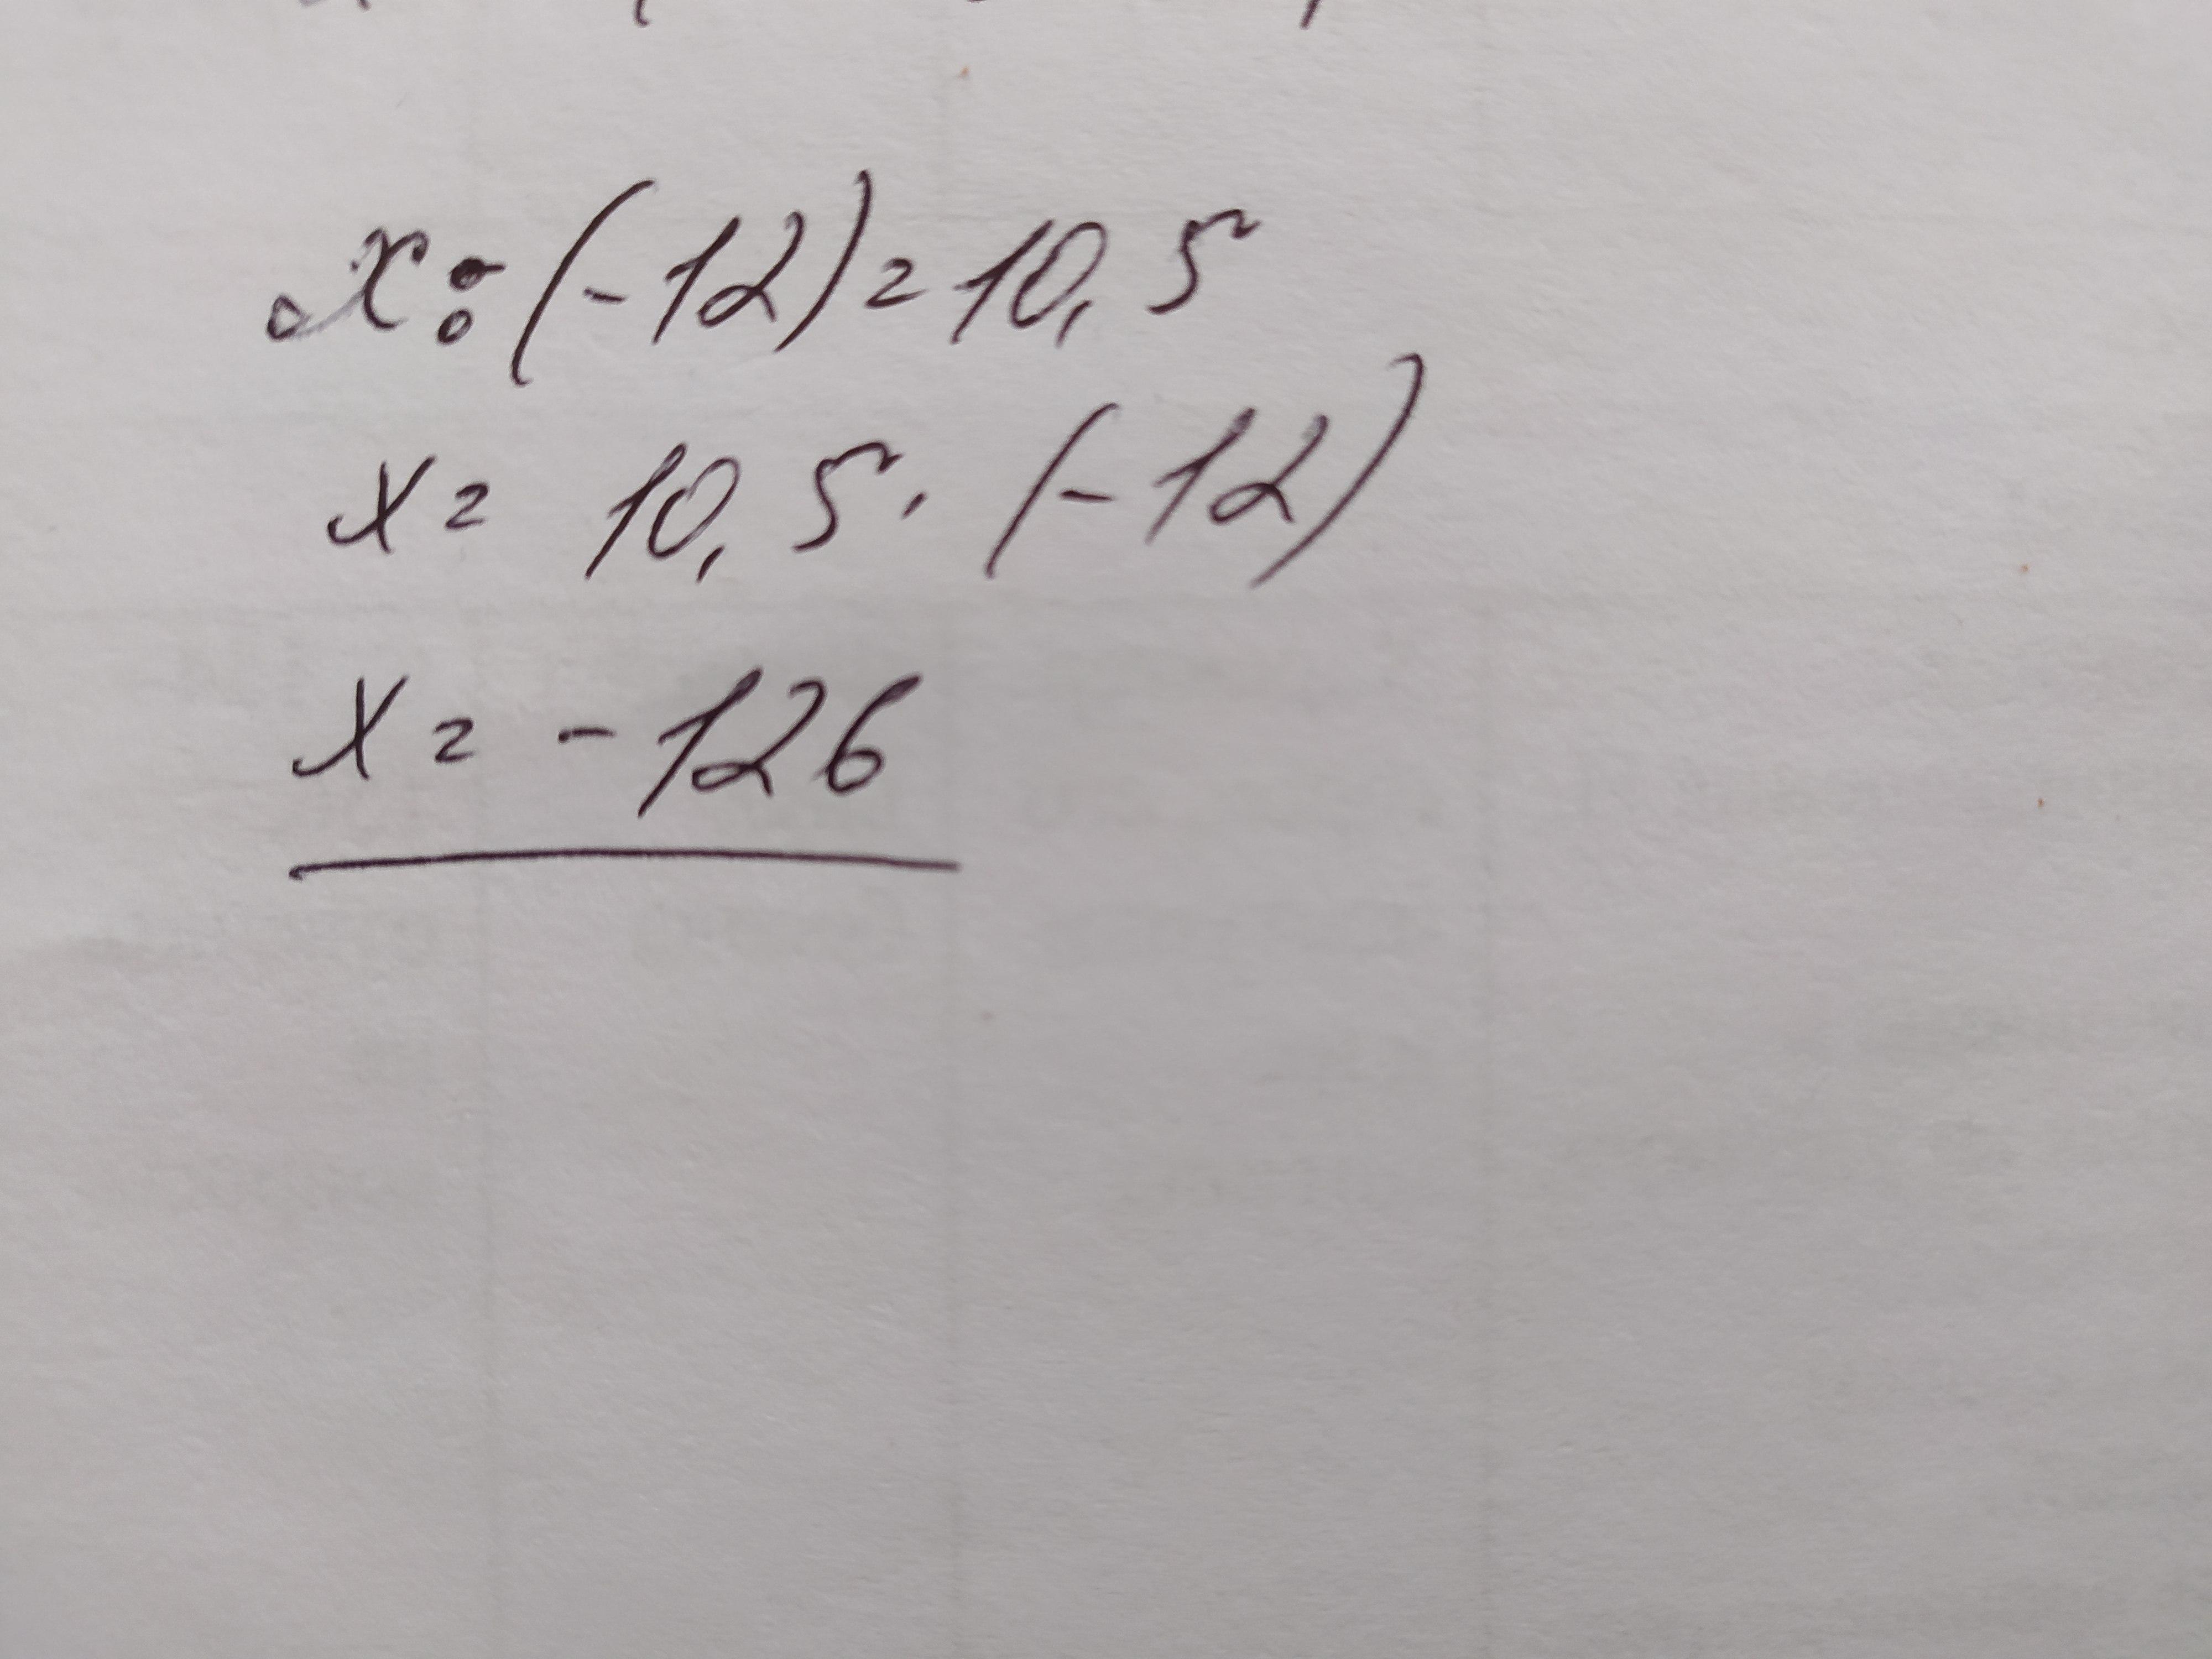 x : (-12) = 10,5
x = 10,5 · (-12)
x = -126